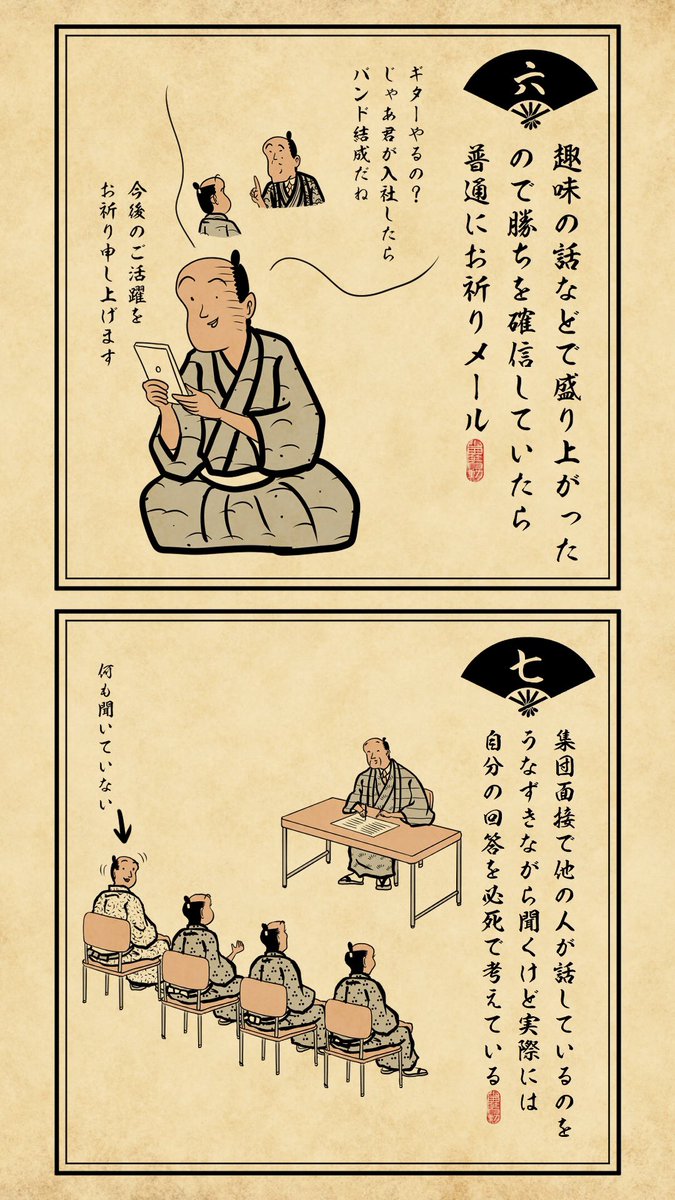 六
趣味の話などで盛り上がった
ので勝ちを確信していたら
普通にお祈りメール
ギターやるの？
じゃあ君が入社したら
バンド結成だね
今後のご活躍を
お祈り申し上げます
七
集団面接で他の人が話しているのを
うなずきながら聞くけど実際には
自分の回答を必死で考えている
何も聞いていない